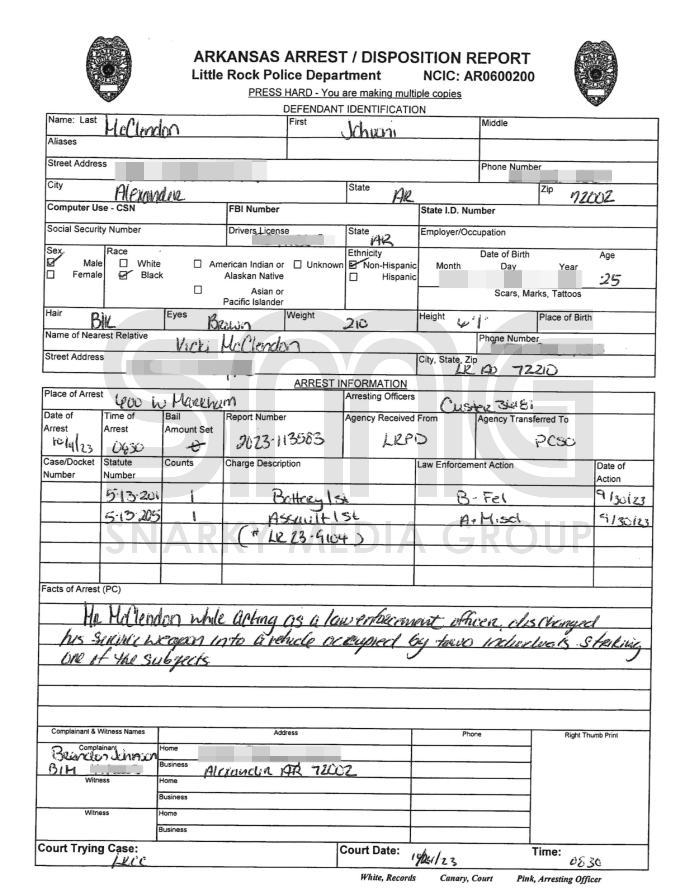 ARKANSAS ARREST / DISPOSITION REPORT
Little Rock Police Department NCIC: AR0600200
PRESS HARD - You are making multiple copies
DEFENDANT IDENTIFICATION
Name: Last McClendon First Middle
Aliases
Street Address Phone Number
City State AR Zip 72002
Computer Use - CSN FBI Number State I.D. Number
Social Security Number Drivers License State AR Employer/Occupation
Sex Race Ethnicity Date of Birth Age
Male White American Indian or Alaskan Native Unknown Non-Hispanic Month Day Year 25
Female Black Asian or Pacific Islander Hispanic Scars, Marks, Tattoos
Hair Blk Eyes Brown Weight 210 Height 6'1" Place of Birth
Name of Nearest Relative Vicki McClendon Phone Number
Street Address City, State, Zip LR 72210
ARREST INFORMATION
Place of Arrest 400 W Markham Arresting Officers Custer
Date of Arrest 10/4/23 Time of Arrest 0430 Bail Amount Set Report Number 2023-113583 Agency Received From LRPD Agency Transferred To PCSO
Case/Docket Number Statute Number Counts Charge Description Law Enforcement Action Date of Action
5-13-201 1 Battery 1st B-Fel 9/30/23
5-13-205 1 Assault 1st A-Misd 9/30/23
(# LR 23-9104)
SMG
SNARKY MEDIA GROUP
Facts of Arrest (PC)
McClendon while acting as a law enforcement officer, discharged
his service weapon into a vehicle occupied by two individuals striking
one of the subjects
Complainant & Witness Names Address Phone Right Thumb Print
Complainant Johnson Home
B/M Business AR 72002
Witness Home
Business
Witness Home
Business
Court Trying Case: Court Date: Time: 0830
White, Records Canary, Court Pink, Arresting Officer